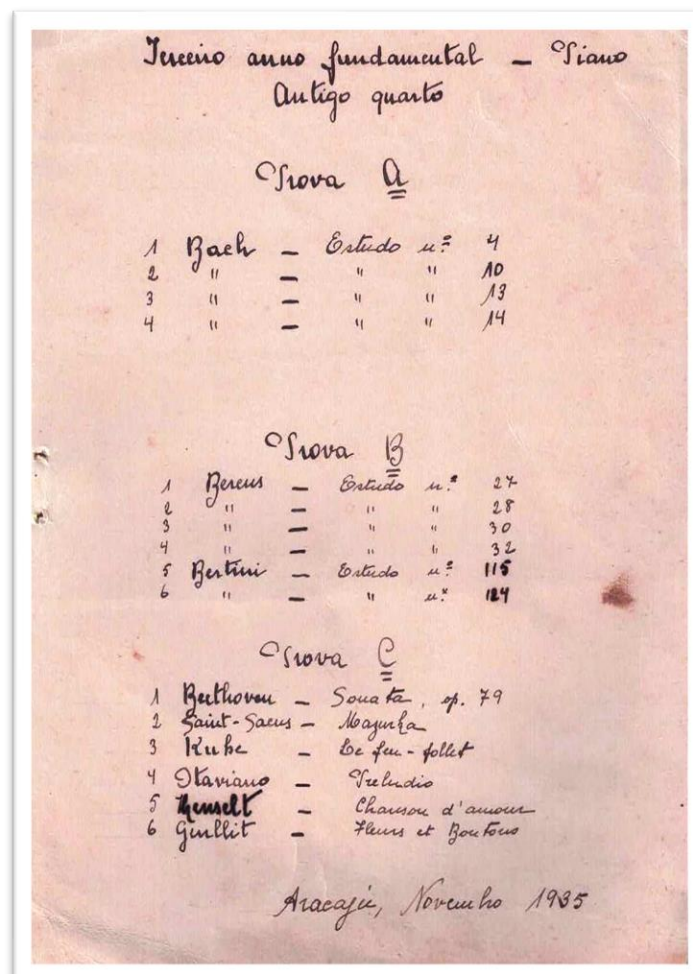 Terceiro anno fundamental — Piano
Antigo quarto
Prova A
1 Bach — Estudo nº 4
2 " — " " 10
3 " — " " 13
4 " — " " 14
Prova B
1 Bereus — Estudo nº 27
2 " — " " 28
3 " — " " 30
4 " — " " 32
5 Bertini — Estudo nº 115
6 " — " nº 124
Prova C
1 Beethoven — Sonata, op. 79
2 Saint-Saens — Mazurka
3 Kuhe — Le feu-follet
4 Otaviano — Preludio
5 Henselt — Chanson d'amour
6 Gurllit — Fleurs et Boutons
Aracajú, Novembro 1935